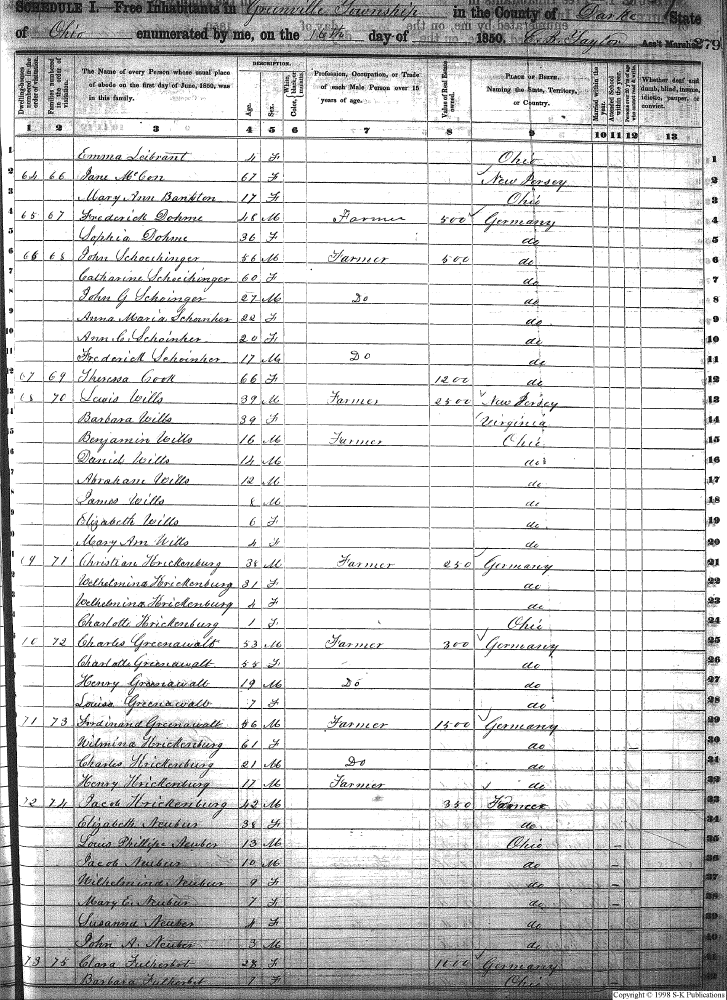 SCHEDULE I.—Free Inhabitants in Greenville Township in the County of Darke State
of Ohio enumerated by me, on the 16th day of 1850. Ass't Marshal 279
DESCRIPTION.
Dwelling-houses numbered in the order of visitation.
Families numbered in the order of visitation.
The Name of every Person whose usual place of abode on the first day of June, 1850, was in this family.
Age.
Sex.
Color, White, black, or mulatto.
Profession, Occupation, or Trade of each Male Person over 15 years of age.
Value of Real Estate owned.
PLACE OF BIRTH. Naming the State, Territory, or Country.
Married within the year.
Attended School within the year.
Persons over 20 y'rs of age who cannot read & write.
Whether deaf and dumb, blind, insane, idiotic, pauper, or convict.
1 2 3 4 5 6 7 8 9 10 11 12 13
1 Emma Leibrant 4 F Ohio 1
2 64 66 Jane McCon 67 F New Jersey 2
3 Mary Ann Bankton 17 F Ohio 3
4 65 67 Frederick Dohme 48 M Farmer 500 Germany 4
5 Sophia Dohme 36 F do 5
6 66 68 John Schoeihinger 56 M Farmer 500 do 6
7 Catharine Schoeihinger 60 F do 7
8 John G Schoinger 27 M Do do 8
9 Anna Maria Schoinher 22 F do 9
10 Ann C. Schoinher 20 F do 10
11 Frederick Schoinher 17 M Do do 11
12 67 69 Theressa Cook 66 F 1200 do 12
13 68 70 Lewis Wills 39 M Farmer 2500 New Jersey 13
14 Barbara Wills 39 F Virginia 14
15 Benjamin Wills 16 M Farmer Ohio 15
16 Daniel Wills 14 M do 16
17 Abraham Wills 12 M do 17
18 James Wills 8 M do 18
19 Elizabeth Wills 6 F do 19
20 Mary Ann Wills 4 F do 20
21 69 71 Christian Krickenburg 38 M Farmer 250 Germany 21
22 Welhelmina Krickenburg 31 F do 22
23 Welhelmina Krickenburg 4 F do 23
24 Charlotte Krickenburg 1 F Ohio 24
25 70 72 Charles Greenawalt 53 M Farmer 300 Germany 25
26 Charlotte Greenawalt 55 F do 26
27 Henry Greenawalt 19 M Do do 27
28 Louisa Greenawalt 7 F do 28
29 71 73 Ferdinand Greenawalt 56 M Farmer 1500 Germany 29
30 Wilmina Krickenburg 61 F do 30
31 Charles Krickenburg 21 M Do do 31
32 Henry Krickenburg 17 M Farmer do 32
33 72 74 Jacob Krickenburg 42 M 350 Farmer 33
34 Elizabeth Neubur 38 F do 34
35 Louis Phillipe Neuber 13 M Ohio 35
36 Jacob Neubur 10 M do 36
37 Wilhelmina Neubur 9 F do 37
38 Mary C. Neubur 7 F do 38
39 Susanna Neuber 4 F do 39
40 John A. Neuber 3 M do 40
41 73 75 Clara Fulherbot 28 F 1000 Germany 41
42 Barbara Fulherbot 7 F Ohio 42
Copyright © 1998 S-K Publications